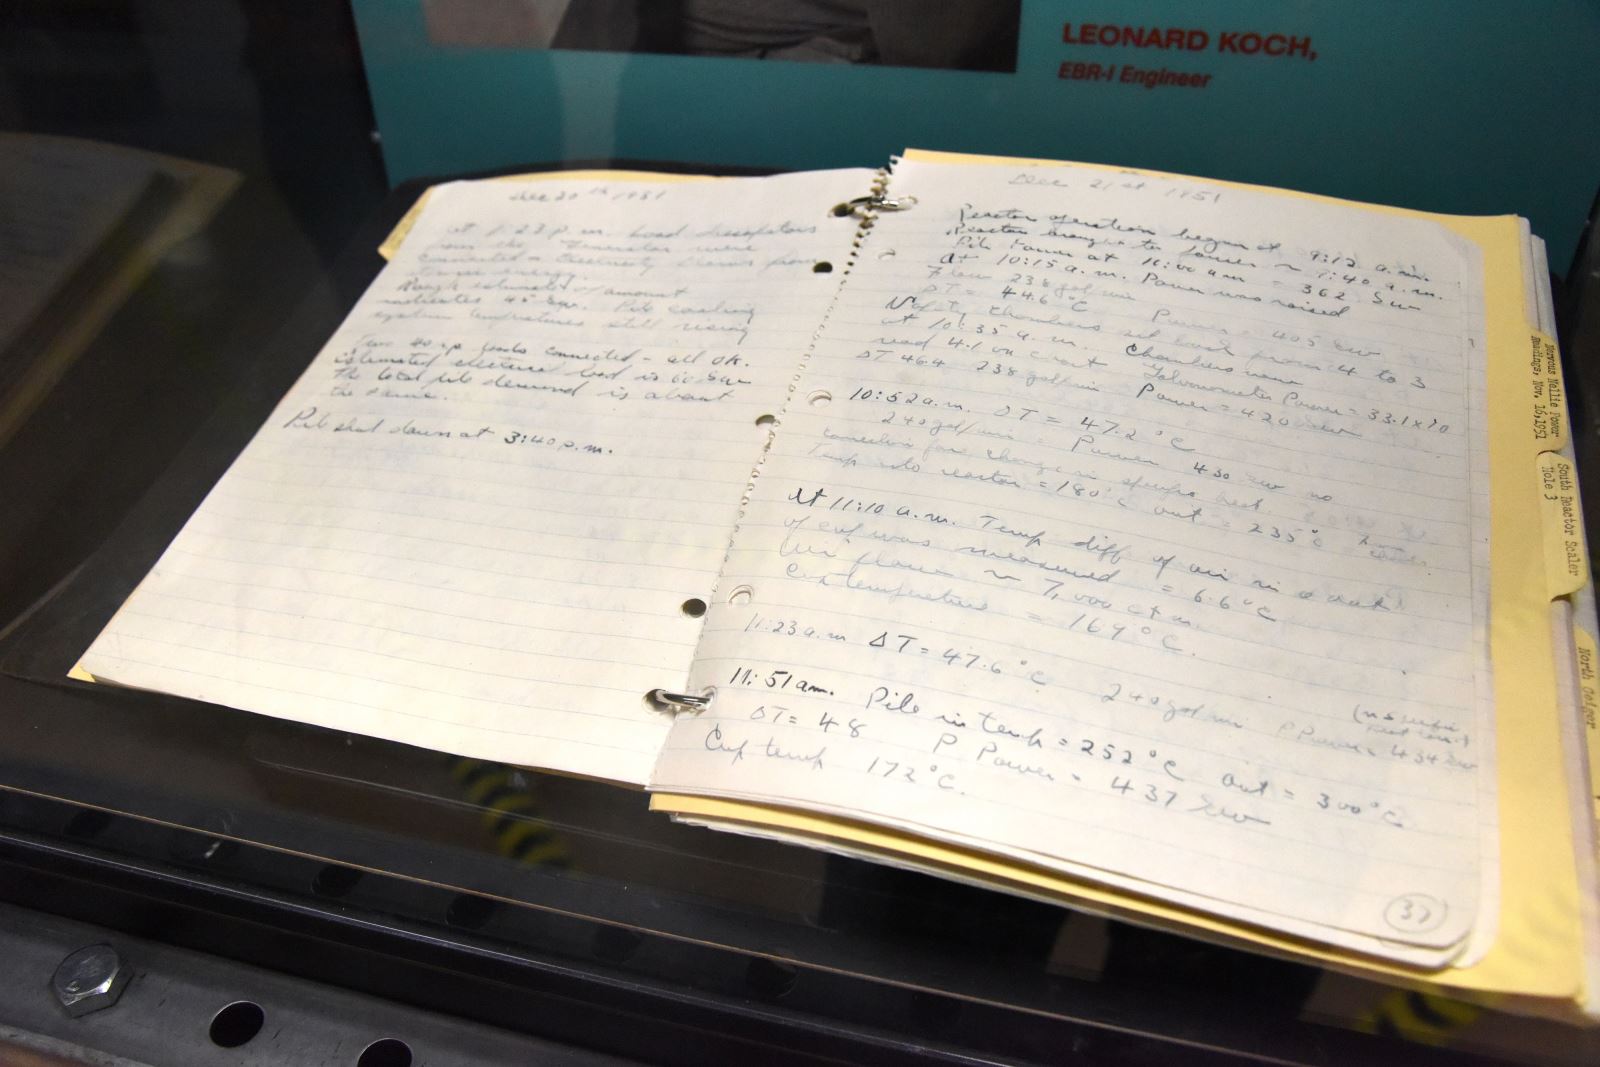 LEONARD KOCH,
EBR-I Engineer
Dec 20th 1951
At 1:23 p.m. Load dissipators
from the Generator were
connected - Electricity flows from
energy.
Rough estimate of amount
indicates 45 kw. Pile cooling
system temperatures still rising
Two 40 loads connected - all OK.
Estimated electrical load is 60 kw
The total pile demand is about
the same.
Pile shut down at 3:40 p.m.
Dec 21st 1951
Reactor operation began at 9:12 a.m.
Reactor brought to power ~ 9:40 a.m.
Pile Power at 11:00 am = 362 kw
At 10:15 a.m. Power was raised
Flow 238 gal/min
ΔT = 44.6°C Power = 405 kw
Safety chambers set back from 4 to 3
at 10:35 a.m. Chambers now
read 4.1 on Galvonometer Power = 33.1x10
ΔT 46.4 238 gal/min Power = 420 kw
10:52 a.m. ΔT = 47.2°C
240 gal/min = Power 430 kw no
correction for change in specific heat.
Temp into reactor = 180°C out = 235°C
At 11:10 a.m. Temp diff of air in & out
of cup was measured = 6.6°C
Air flow ~ 7,000 cfm.
Cup temperature = 169°C.
11:23 a.m ΔT = 47.6°C 240 gal/min P Power = 434 kw
(no specific
heat corr.)
11:51 am. Pile in temp = 252°C out = 300°C
ΔT = 48 P Power = 437 kw
Cup temp 172°C.
37
Nervous Nellie Power
Readings, Nov. 16,1951
South Reactor Scaler
Hole 3
North Geiger